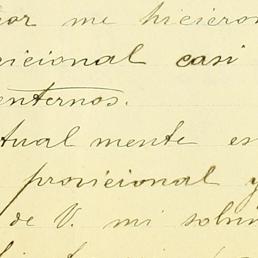 or me hicieron
icional casi
enternos.
tual mente es
provicional y
de V. mi sobrin